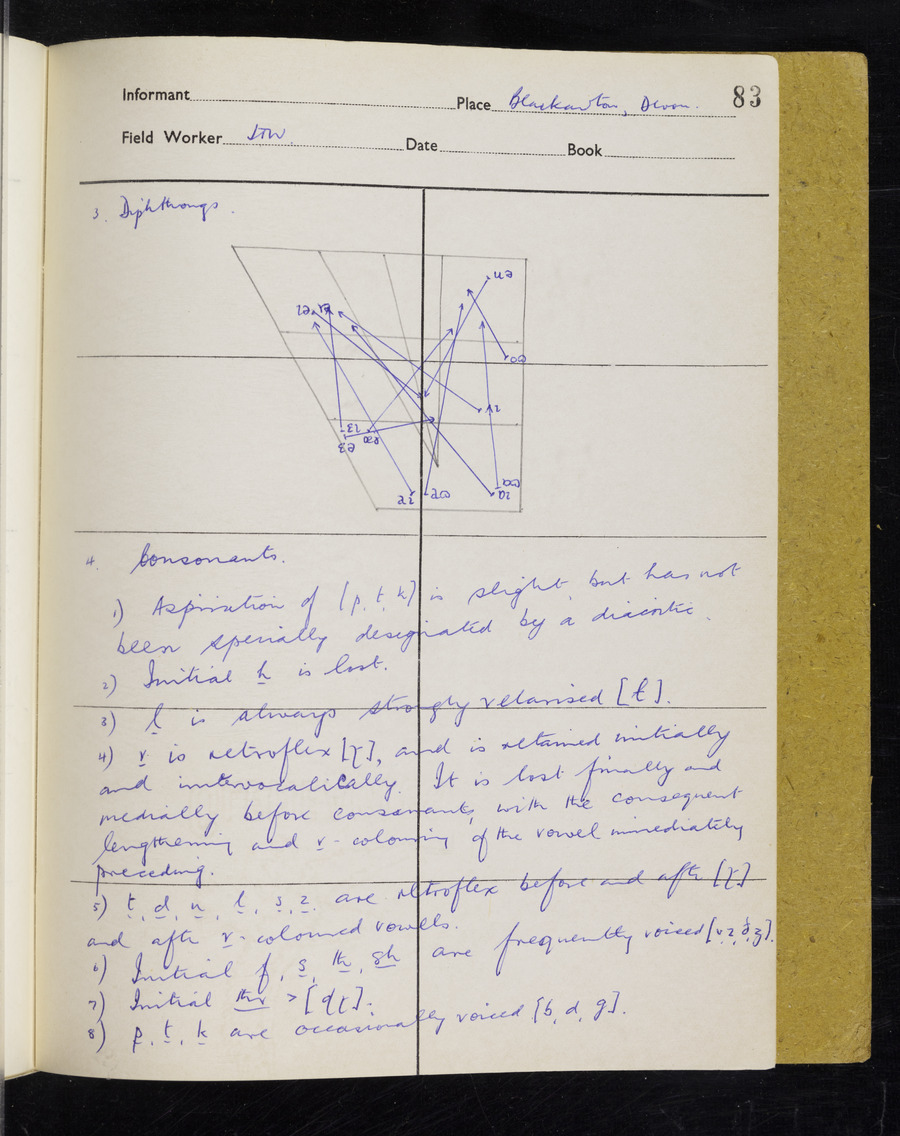 Informant Place Blackawton, Devon. 83
Field Worker JTW. Date Book
3. Diphthongs.
uə
ɔʊ
4. Consonants.
1) Aspiration of [p, t, k] is slight, but has not
been specially designated by a diacritic.
2) Initial h is lost.
3) l is always strongly velarised [ɫ].
4) r is retroflex [ɽ], and is retained initially
and intervocalically. It is lost finally and
medially before consonants, with the consequent
lengthening and r-colouring of the vowel immediately
preceding.
5) t, d, n, l, s, z are retroflex before and after [ɽ]
and after r-coloured vowels.
6) Initial f, s, th, sh are frequently voiced [v, z, ð, ʒ].
7) Initial thr > [dɽ].
8) p, t, k are occasionally voiced [b, d, g].